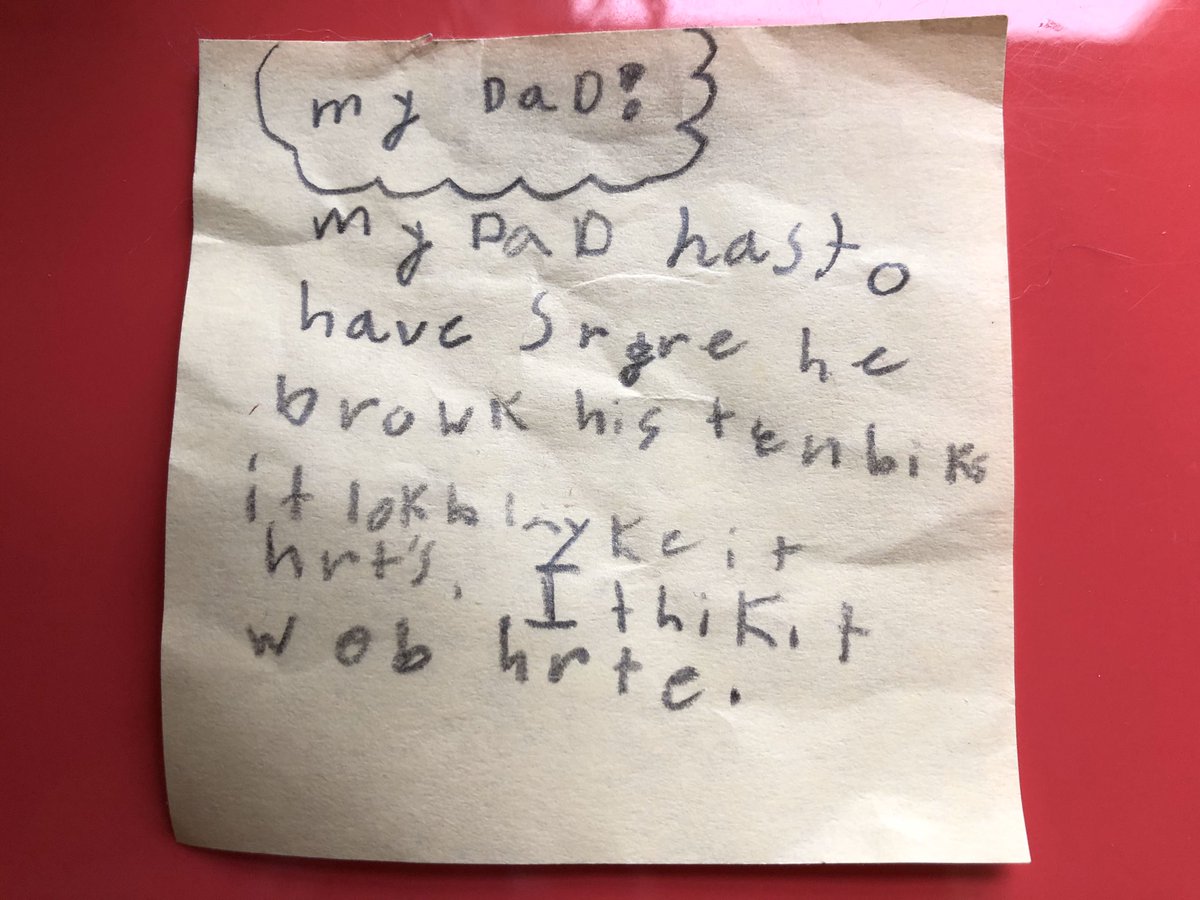 my DaD!
my DaD hasto
have Srgre he
browk his tenbiks
it lok
hrt's. I thikit
wob hrte.